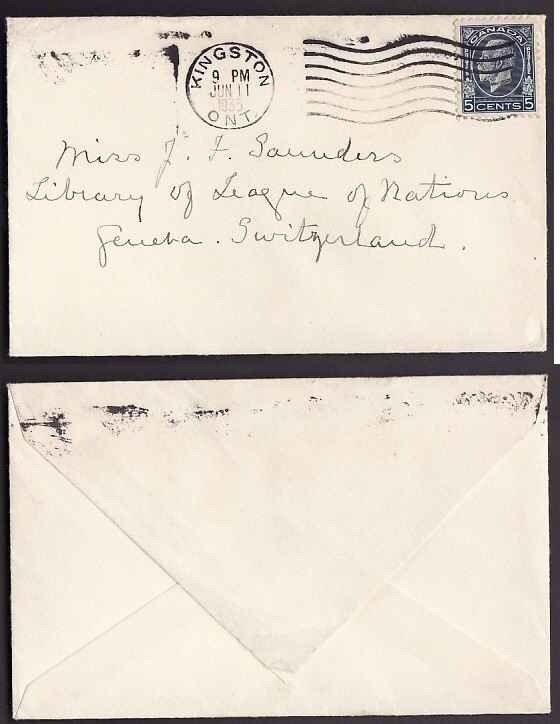 KINGSTON
9 PM
JUN 11
1935
ONT.
CANADA
5 CENTS 5
Miss J. F. Saunders
Library of League of Nations
Geneva. Switzerland.